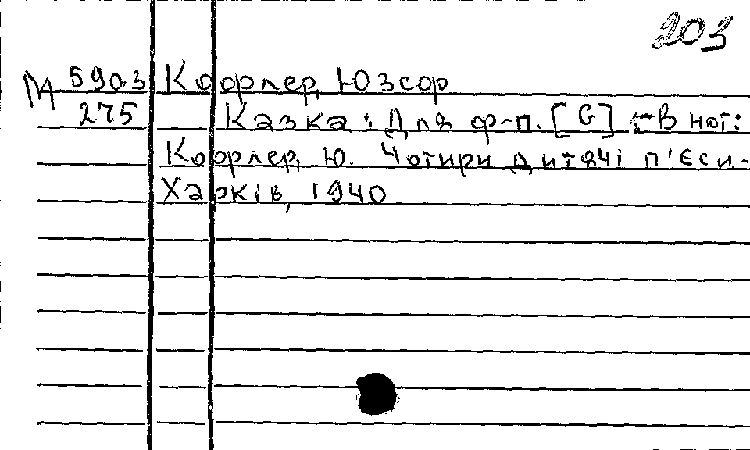 203
М 5903 Кофлер, Юзеф
275 Казка: Для ф-п. [G] – В нот:
Кофлер, Ю. Чотири дитячі п'єси.-
Харків, 1940